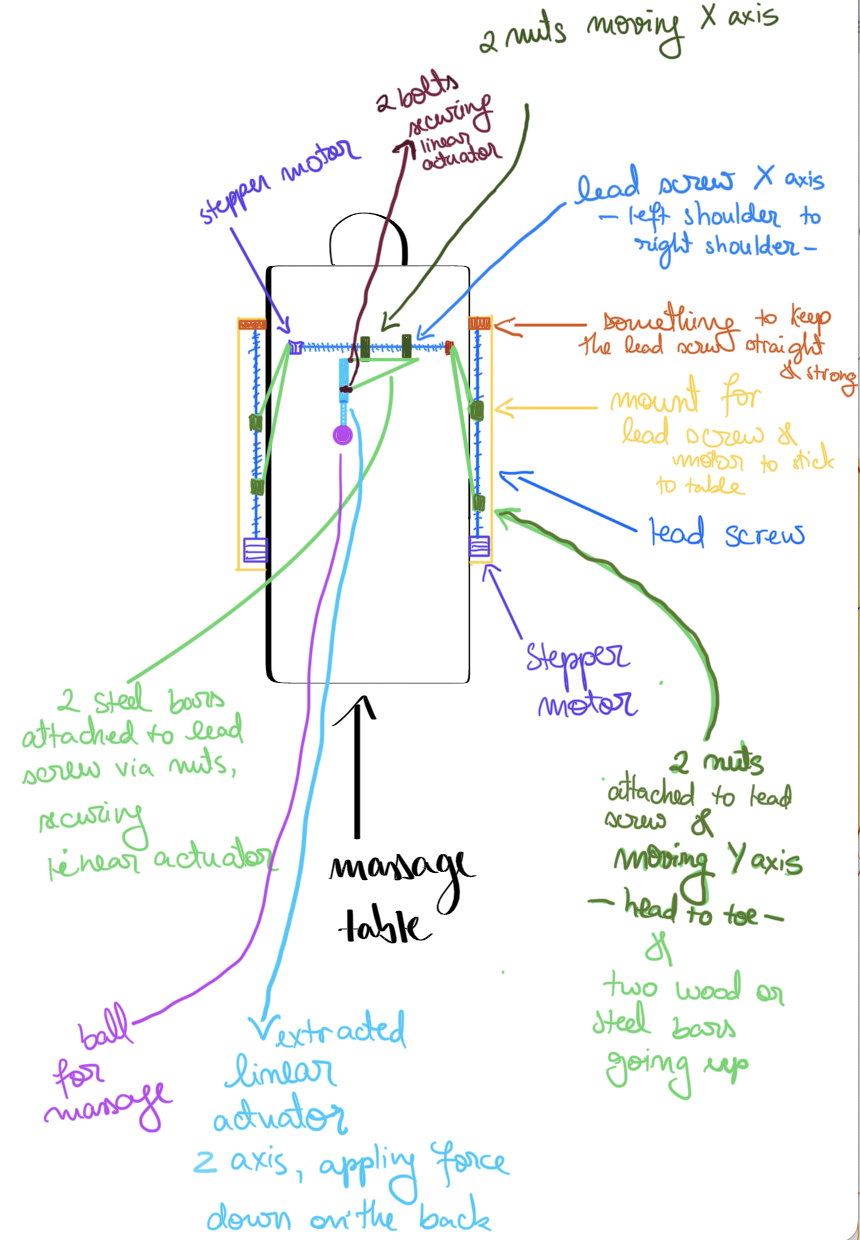 2 nuts moving X axis
2 bolts
securing
linear
actuator
stepper motor
lead screw X axis
- left shoulder to
right shoulder -
something to keep
the lead screw straight
& strong
mount for
lead screw &
motor to stick
to table
lead screw
stepper
motor
2 steel bars
attached to lead
screw via nuts,
securing
linear actuator
massage
table
2 nuts
attached to lead
screw &
moving Y axis
- head to toe -
&
two wood or
steel bars
going up
ball
for
massage
extracted
linear
actuator
Z axis, appling force
down on the back